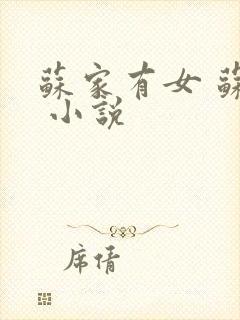 蘇家有女 蘇
小説
席情